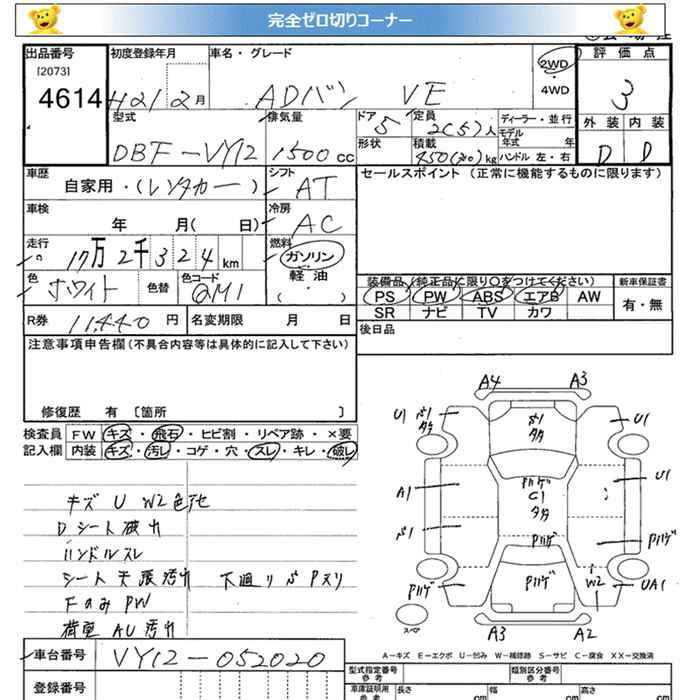 完全ゼロ切りコーナー
出品番号 初度登録年月 車名・グレード 2WD 評価点
[2073]
4614 H21 2月 ADバン VE 4WD 3
型式 排気量 ドア 5 定員 2(5)人 ディーラー・並行 外装 内装
モデル年式 年
DBF-VY12 1500cc 形状 積載 kg ハンドル 左・右 D D
車歴 自家用・(レンタカー) シフト AT セールスポイント(正常に機能するものに限ります)
車検 年 月( 日) 冷房 AC
走行 17万2千324km 燃料 ガソリン
軽油
( ・ )
色 ホワイト 色替 色コード QM1
装備品(純正品に限り○をつけてください) 新車保証書
PS PW ABS エアB AW 有・無
SR ナビ TV カワ
R券 11,440円 名変期限 月 日 後日品
注意事項申告欄(不具合内容等は具体的に記入して下さい)
修復歴 有 〔箇所 〕
検査員記入欄 FW キズ・飛石・ヒビ割・リペア跡・×要
内装 キズ・汚レ・コゲ・穴・スレ・キレ・破レ
キズ U W2 色
Dシート破れ
ハンドルスレ
シート 天張汚れ 下廻り
FのみPW
荷室 AU 汚れ
A4 A3
U1 U1
A1 C1 U1
W2 UA1
スペア
A3 A2
A-キズ E-エクボ U-凹み W-補修跡 S-サビ C-腐食 XX-交換済
車台番号 VY12-052020
登録番号
型式指定番号 参考 類別区分番号 参考
車庫証明用 参考 長さ cm 幅 cm 高さ cm